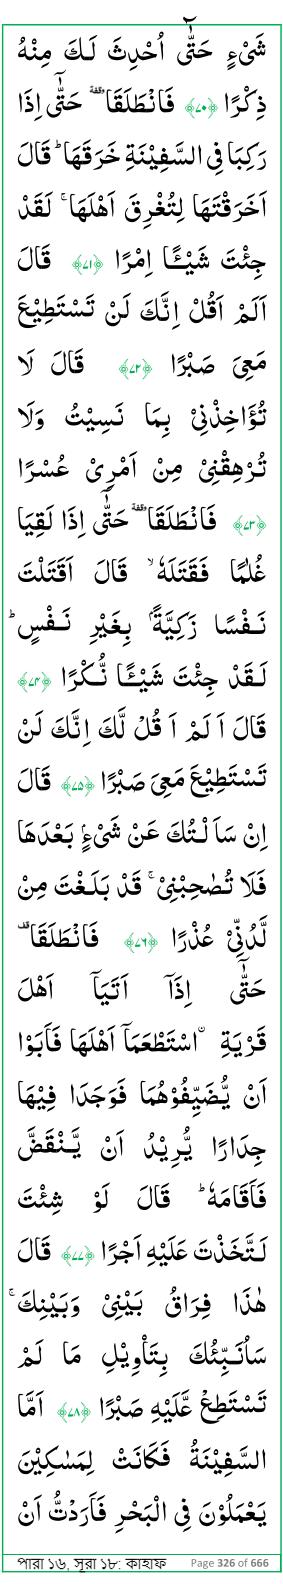 شَیْءٍ حَتّٰۤی اُحْدِثَ لَکَ مِنْهُ
ذِکْرًا ﴿۷۰﴾ فَانْطَلَقَا ٝ حَتّٰۤی اِذَا
رَکِبَا فِی السَّفِیْنَةِ خَرَقَهَا ؕ قَالَ
اَخَرَقْتَهَا لِتُغْرِقَ اَهْلَهَا ۚ لَقَدْ
جِئْتَ شَیْـًٔا اِمْرًا ﴿۷۱﴾ قَالَ
اَلَمْ اَقُلْ اِنَّکَ لَنْ تَسْتَطِیْعَ
مَعِیَ صَبْرًا ﴿۷۲﴾ قَالَ لَا
تُؤَاخِذْنِیْ بِمَا نَسِیْتُ وَلَا
تُرْهِقْنِیْ مِنْ اَمْرِیْ عُسْرًا
﴿۷۳﴾ فَانْطَلَقَا ٝ حَتّٰۤی اِذَا لَقِیَا
غُلٰمًا فَقَتَلَهٗ ۙ قَالَ اَقَتَلْتَ
نَفْسًا زَکِیَّةًۢ بِغَیْرِ نَفْسٍ ؕ
لَقَدْ جِئْتَ شَیْـًٔا نُّکْرًا ﴿۷۴﴾
قَالَ اَ لَمْ اَ قُلْ لَّکَ اِنَّکَ لَنْ
تَسْتَطِیْعَ مَعِیَ صَبْرًا ﴿۷۵﴾ قَالَ
اِنْ سَاَ لْتُکَ عَنْ شَیْءٍۭ بَعْدَهَا
فَلَا تُصٰحِبْنِیْ ۚ قَدْ بَلَغْتَ مِنْ
لَّدُنِّیْ عُذْرًا ﴿۷۶﴾ فَانْطَلَقَا ٝ
حَتّٰۤی اِذَاۤ اَتَیَاۤ اَهْلَ
قَرْیَةِ ۣاسْتَطْعَمَاۤ اَهْلَهَا فَاَبَوْا
اَنْ یُّضَیِّفُوْهُمَا فَوَجَدَا فِیْهَا
جِدَارًا یُّرِیْدُ اَنْ یَّنْقَضَّ
فَاَقَامَهٗ ؕ قَالَ لَوْ شِئْتَ
لَتَّخَذْتَ عَلَیْهِ اَجْرًا ﴿۷۷﴾ قَالَ
هٰذَا فِرَاقُ بَیْنِیْ وَبَیْنِکَ ۚ
سَاُنَبِّئُکَ بِتَاْوِیْلِ مَا لَمْ
تَسْتَطِعْ عَّلَیْهِ صَبْرًا ﴿۷۸﴾ اَمَّا
السَّفِیْنَةُ فَکَانَتْ لِمَسٰکِیْنَ
یَعْمَلُوْنَ فِی الْبَحْرِ فَاَرَدْتُّ اَنْ
পারা ১৬, সূরা ১৮: কাহাফ Page 326 of 666